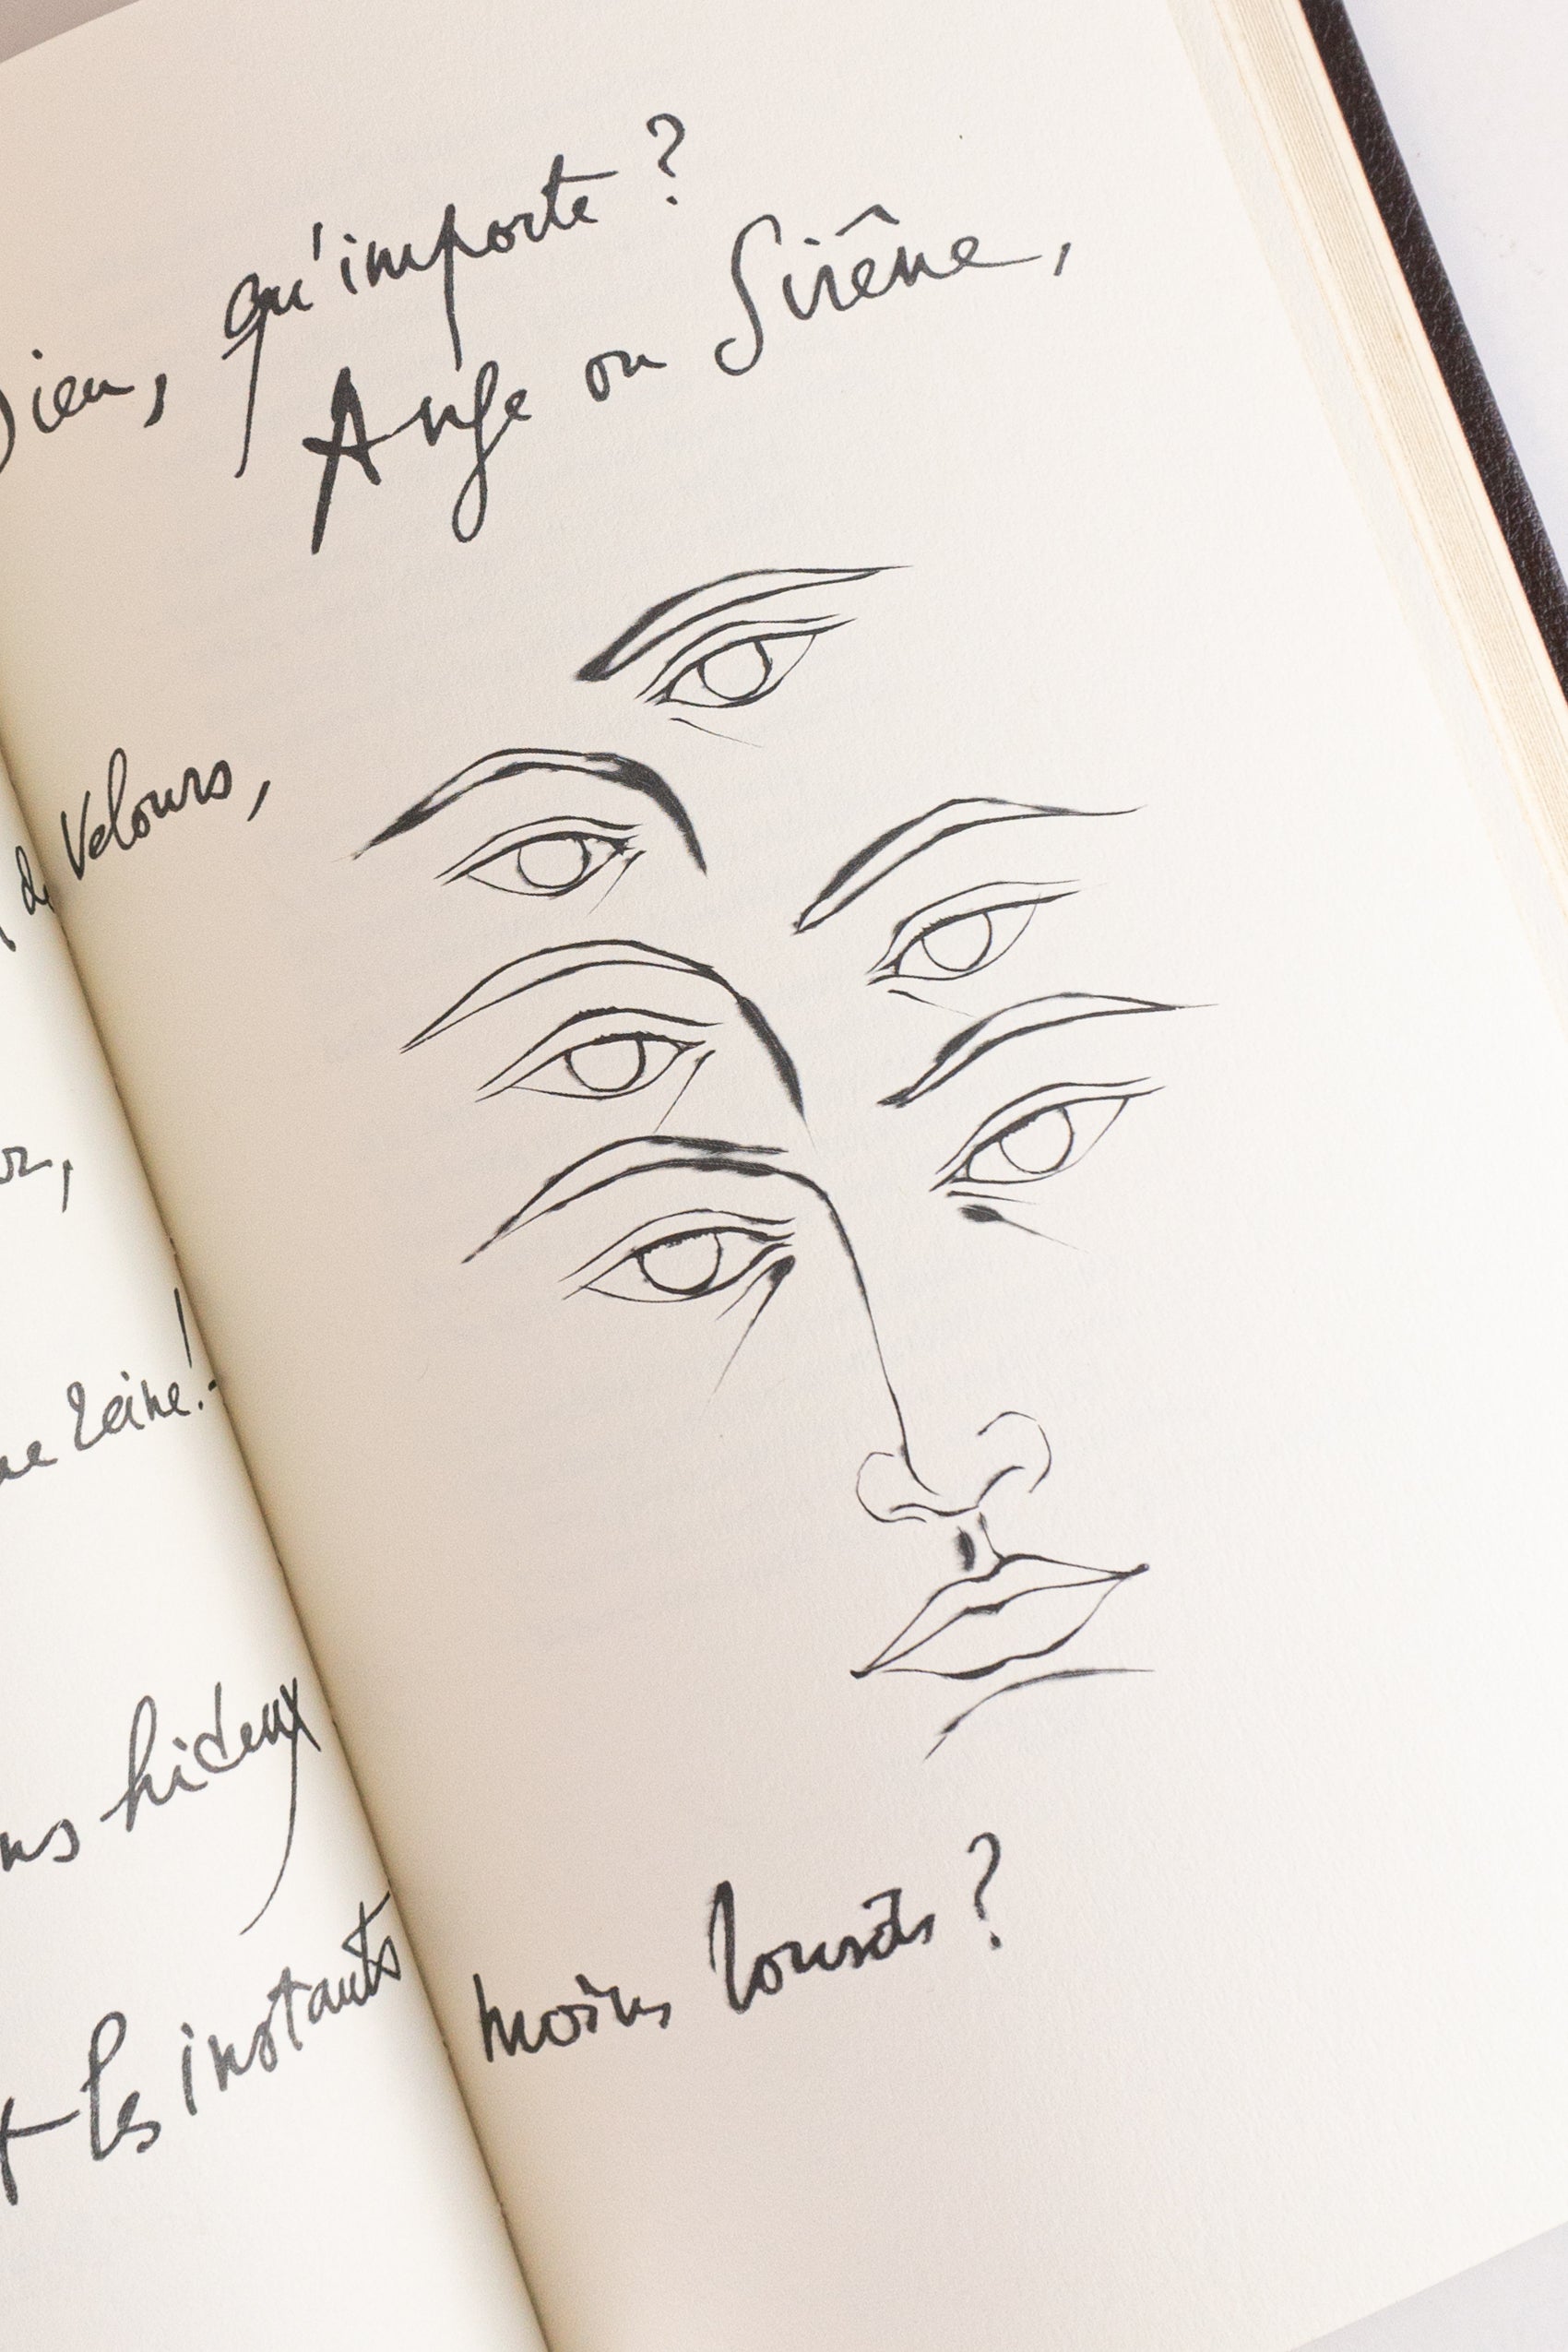 Dieu, qu'importe ?
Ange ou Sirêne,
de Velours,
reine !-
hideux
les instants
moins lourds ?